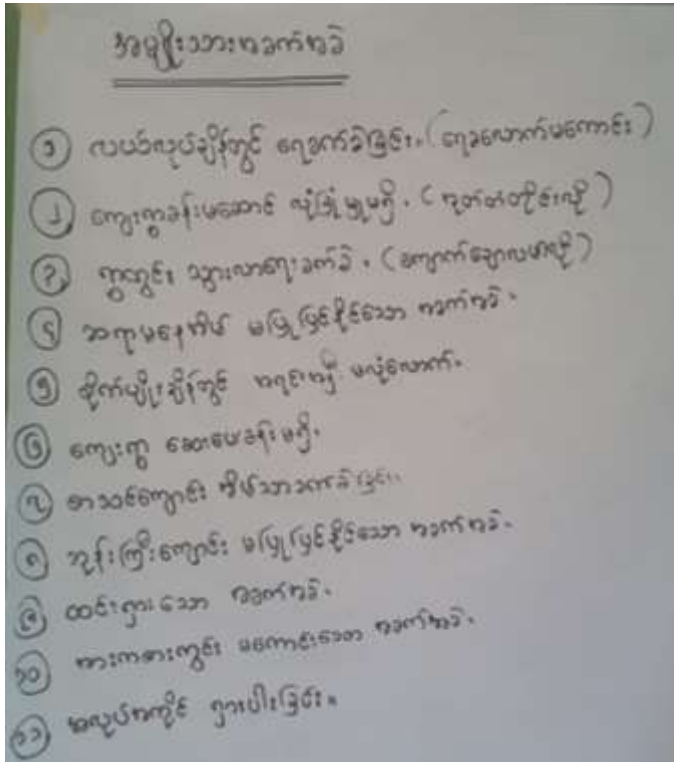 အမျိုးသားအခက်အခဲ
၁ လယ်လုပ်ချိန်တွင် ရေခက်ခဲခြင်း။ (ရေခလောက်မကောင်း)
၂ ကျေးရွာခန်းမဆောင် လုံခြုံမှုမရှိ။ (အုတ်တံတိုင်းလို)
၃ ရွာတွင်း သွားလာရေးခက်ခဲ။ (ကျောက်ချောလမ်းလို)
၄ ဆရာမနေအိမ် မပြုပြင်နိုင်သော အခက်အခဲ။
၅ စိုက်ပျိုးချိန်တွင် အရင်းအနှီး မလုံလောက်။
၆ ကျေးရွာ ဆေးပေးခန်းမရှိ။
၇ စာသင်ကျောင်း အိမ်သာခက်ခဲခြင်း။
၈ ဘုန်းကြီးကျောင်း မပြုပြင်နိုင်သော အခက်အခဲ။
၉ ထင်းရှားသော အခက်အခဲ။
၁၀ အားကစားကွင်း မကောင်းသော အခက်အခဲ။
၁၁ အလုပ်အကိုင် ရှားပါးခြင်း။